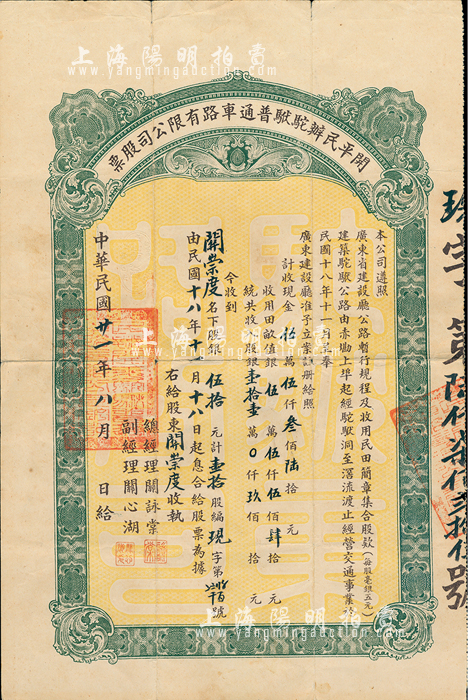 上海陽明拍賣
www.yangmingauction.com
開平民辦駝駛普通車路有限公司股票
本公司遵照
廣東省建設廳公路暫行規程及收用民田簡章集合股款(每股毫銀五元)
建築駝駛公路由赤坎上埠起經駝駛洞至滘流渡止經營交通事業於
民國十八年十一月呈奉
廣東建設廳准予立案註冊給照
計收現金拾萬伍仟叁佰陸拾元
收用田畝值銀伍萬伍仟伍佰肆拾元
統共收入股銀壹拾壹萬0仟玖佰拾元
今收到
關崇度名下股銀伍拾元計壹拾股編現字第號
由民國十八年十月十八日起息合給股票為據
右給股東關崇度收執
總經理關詠棠
副經理關心湖
中華民國廿一年八月日給
字第陸仟柒佰貳拾伍號
上海陽明拍賣
www.yangmingauction.com
上海陽明拍賣
www.yangmingauction.com